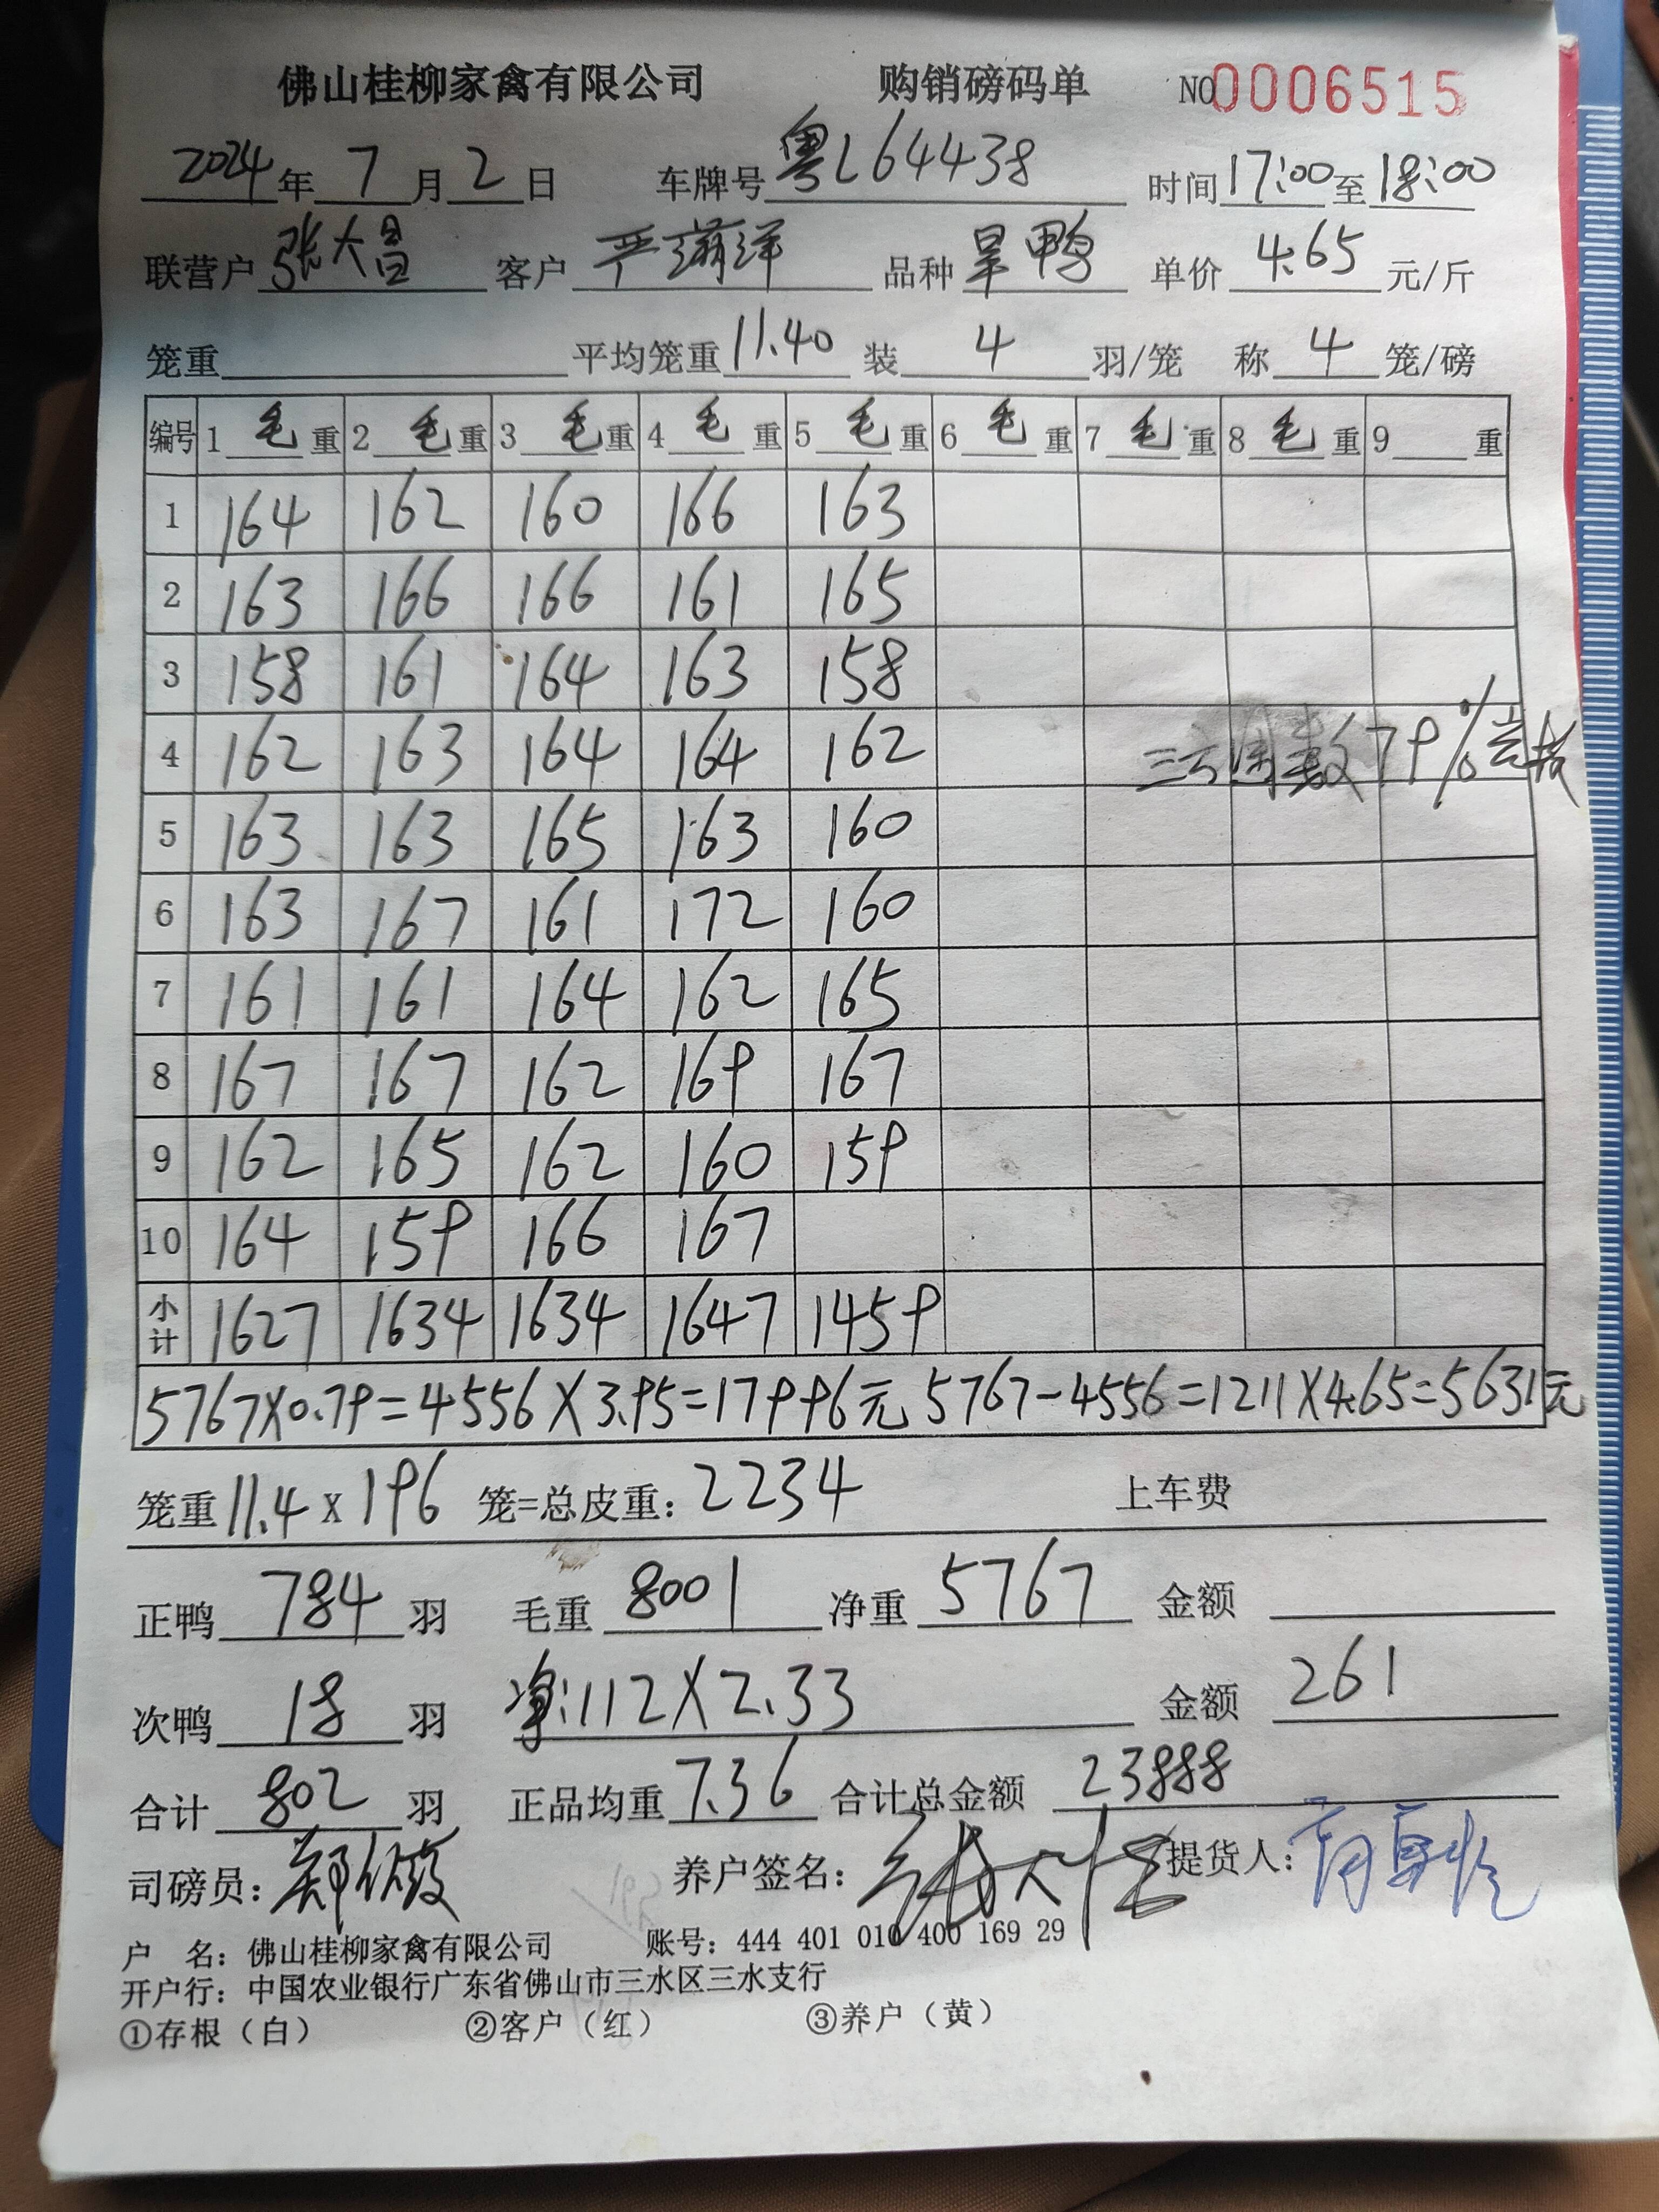 佛山桂柳家禽有限公司 购销磅码单 NO 0006515
2024年 7 月 2 日 车牌号 粤L64438 时间 17:00 至 18:00
联营户 张大昌 客户 严 洋 品种 旱鸭 单价 4.65 元/斤
笼重 平均笼重 11.40 装 4 羽/笼 称 4 笼/磅
编号 1 毛 重 2 毛 重 3 毛 重 4 毛 重 5 毛 重 6 毛 重 7 毛 重 8 毛 重 9 重
1 164 162 160 166 163
2 163 166 166 161 165
3 158 161 164 163 158
4 162 163 164 164 162 数79%
5 163 163 165 163 160
6 163 167 161 172 160
7 161 161 164 162 165
8 167 167 162 169 167
9 162 165 162 160 159
10 164 159 166 167
小计 1627 1634 1634 1647 1459
5767X0.79=4556X3.95=17996元 5767-4556=1211X4.65=5631元
笼重 11.4 X 196 笼=总皮重: 2234 上车费
正鸭 784 羽 毛重 8001 净重 5767 金额
次鸭 18 羽 净:112X2.33 金额 261
合计 802 羽 正品均重 7.36 合计总金额 23888
司磅员: 养户签名: 提货人:
户 名: 佛山桂柳家禽有限公司 账号: 444 401 010 400 169 29
开户行: 中国农业银行广东省佛山市三水区三水支行
①存根（白） ②客户（红） ③养户（黄）